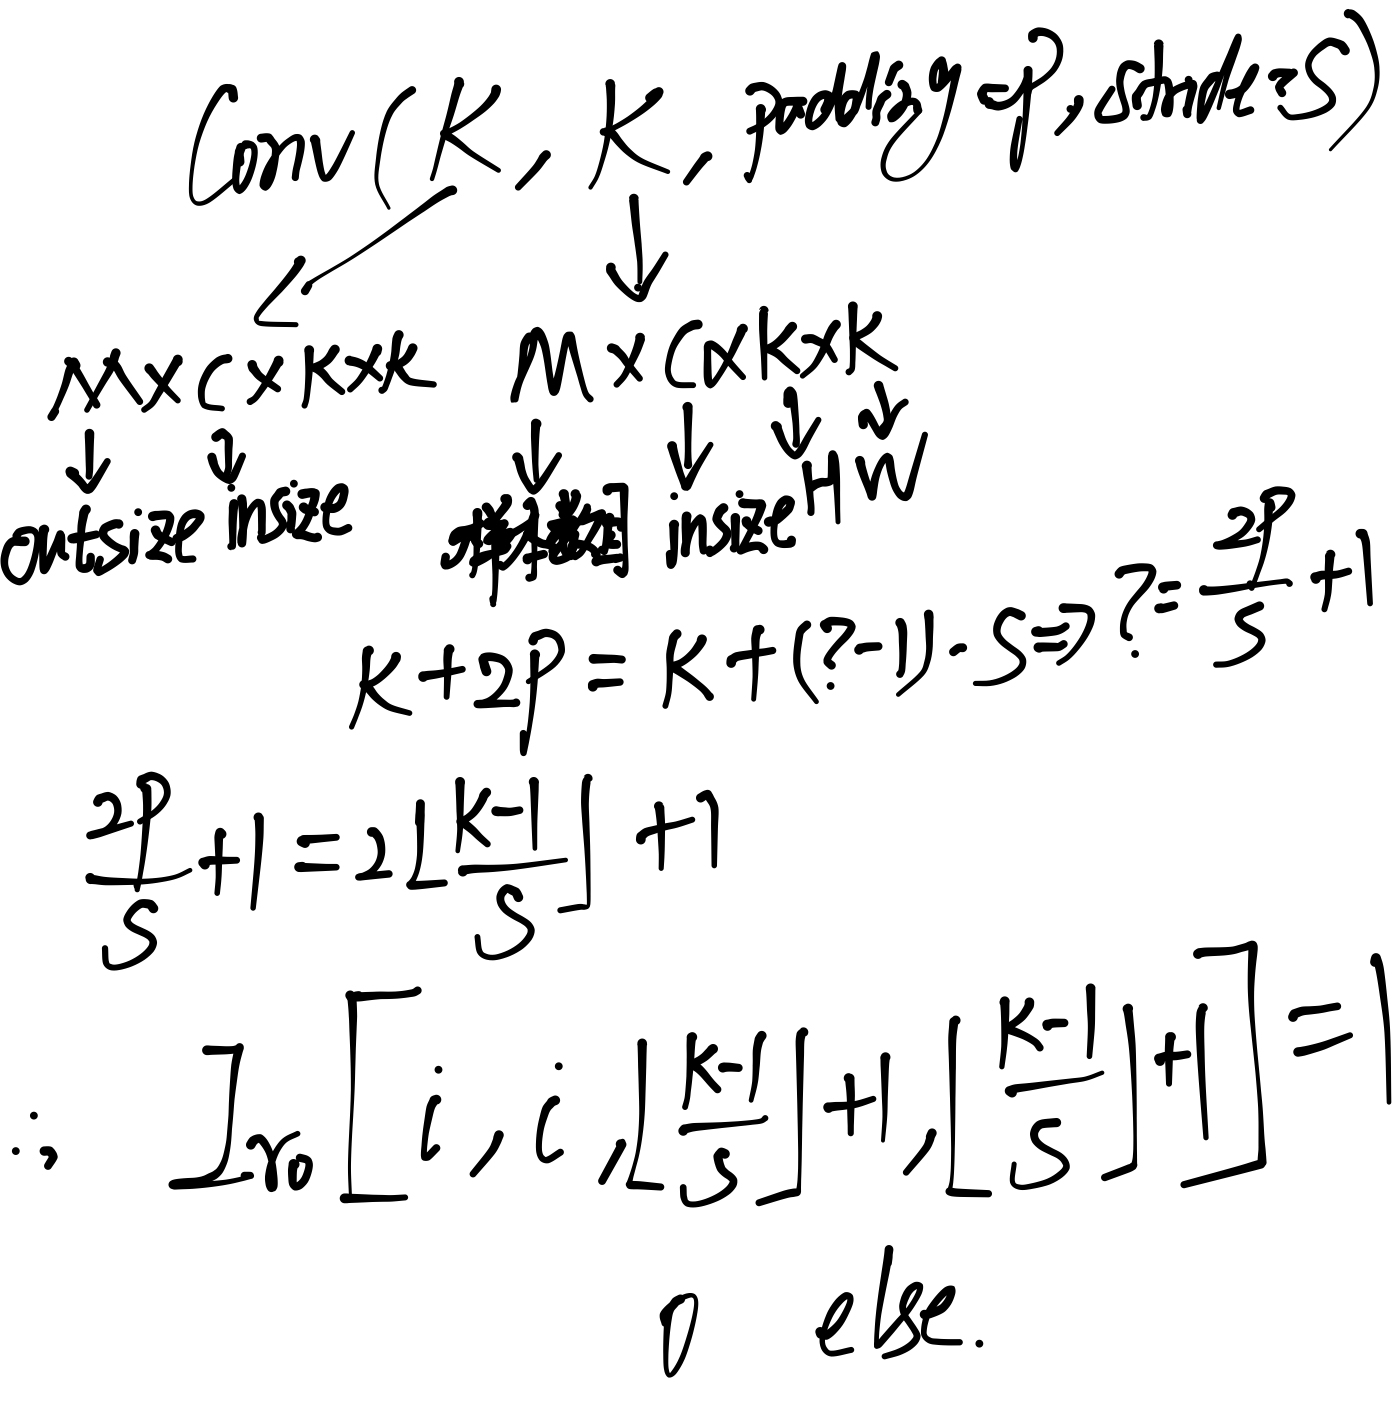 Conv(K, K, padding=P, stride=S)
M×C×K×K M×C×K×K
outsize insize 样本数 insize H W
K+2P=K+(?-1)·S⇒?=\frac{2P}{S}+1
\frac{2P}{S}+1=2⌊\frac{K-1}{S}⌋+1
∴ I_{r0}[i,i,⌊\frac{K-1}{S}⌋+1,⌊\frac{K-1}{S}⌋+1]=1
0 else.